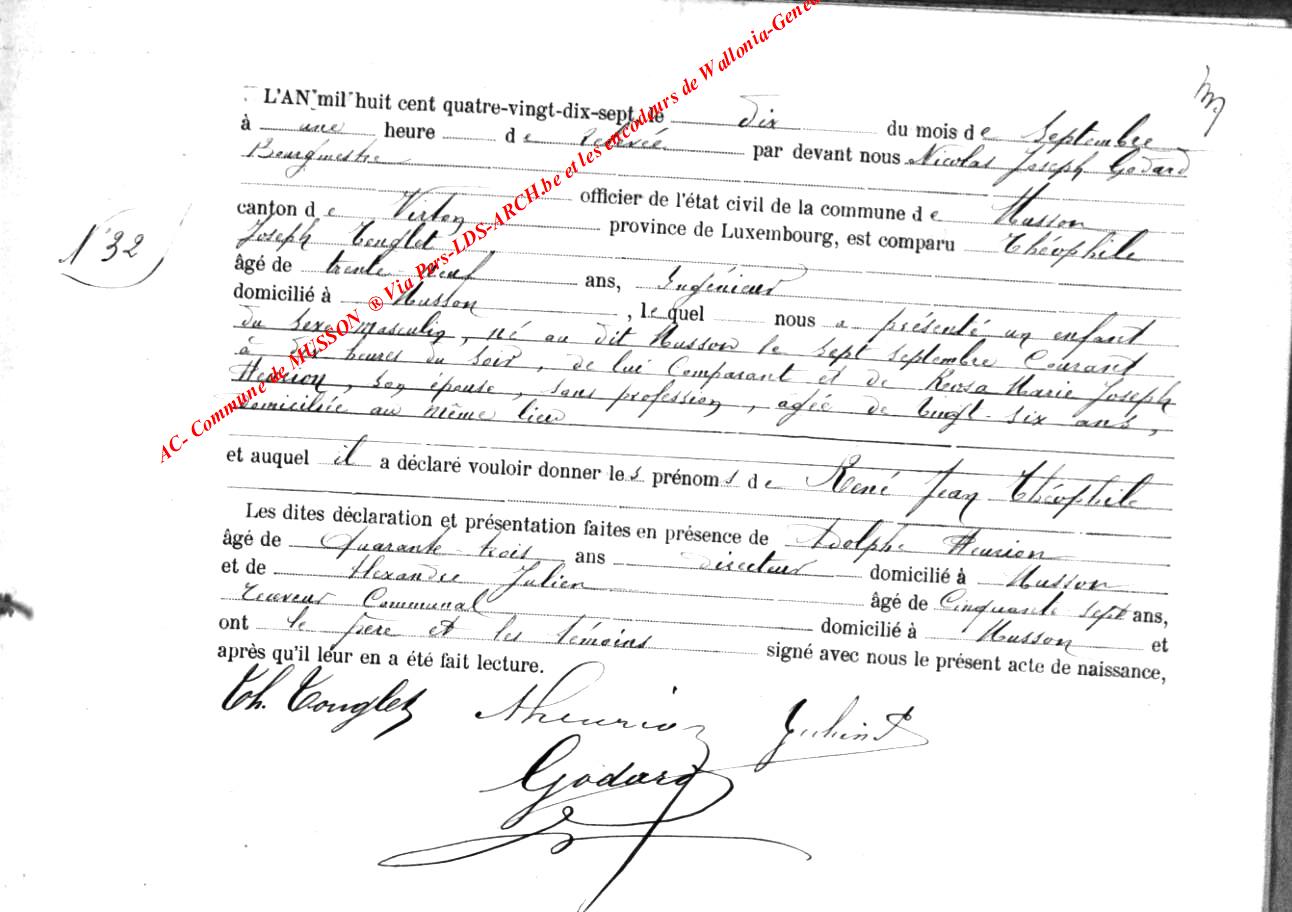 L'AN mil huit cent quatre-vingt-dix-sept, le dix du mois de Septembre
à une heure de relevée par devant nous Nicolas Joseph Godard
Bourgmestre
officier de l'état civil de la commune de Musson
canton de Virton province de Luxembourg, est comparu Théophile
Joseph Tonglet
âgé de trente neuf ans, Ingénieur
domicilié à Musson, lequel nous a présenté un enfant
du sexe masculin, né au dit Musson le sept septembre courant
à dix heures du soir, de lui Comparant et de Rosa Marie Joseph
Heurion, son épouse, sans profession, agée de vingt-six ans,
domiciliée au même lieu
et auquel il a déclaré vouloir donner les prénoms de René Jean Théophile
Les dites déclaration et présentation faites en présence de Adolphe Heurion
âgé de Quarante trois ans directeur domicilié à Musson
et de Alexandre Julien âgé de Cinquante sept ans,
receveur Communal domicilié à Musson et
ont le père et les témoins signé avec nous le présent acte de naissance,
après qu'il leur en a été fait lecture.
Th. Tonglet AHeurion
Godard
N° 32
AC- Commune de MUSSON ® Via Pers-LDS-ARCH.be et les encodeurs de Wallonia-Genea